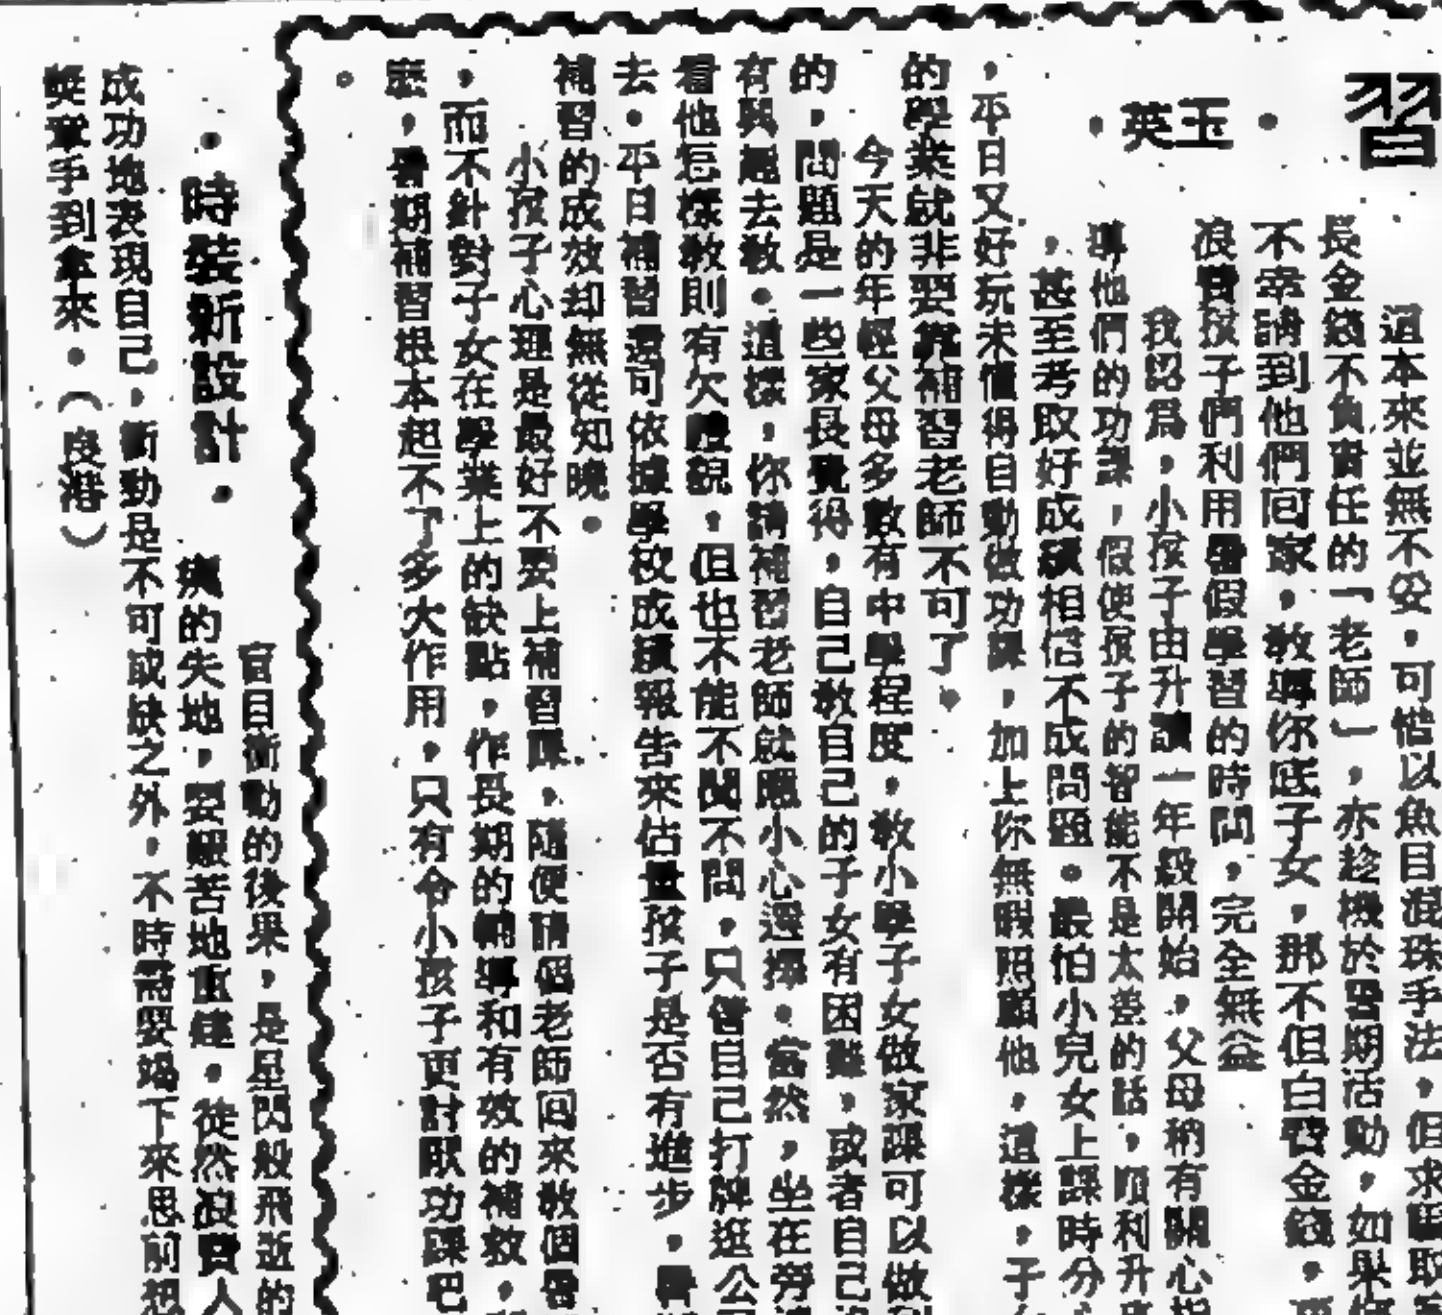 習
•玉英•
這本來並無不妥，可惜以魚目混珠手法，但求
長金錢不負責任的「老師」，亦趁機於暑期活動，如果
不幸請到他們回家，教導你底子女，那不但白費金錢，
浪費孩子們利用暑假學習的時間，完全無益
我認爲，小孩子由升讀一年級開始，父母稍有關心
導他們的功課，假使孩子的智能不是太差的話，順利升
，甚至考取好成績相信不成問題。最怕小兒女上課時分
，平日又好玩未懂得自動做功課，加上你無暇照顧他，這樣，子
的學業就非要靠補習老師不可了。
今天的年輕父母多數有中學程度，教小學子女做家課可以做
的，問題是一些家長覺得，自己教自己的子女有困難，或者自己
有興趣去教。這樣，你請補習老師就應小心選擇。當然，坐在旁
看他怎樣教則有欠禮貌，但也不能不聞不問，只管自己打牌逛公
去。平日補習還可依據學校成績報告來估量孩子是否有進步，暑
補習的成效却無從知曉。
小孩子心理是最好不要上補習課，隨便請個老師回來教個
，而不針對子女在學業上的缺點，作長期的輔導和有效的補救，
麼，暑期補習根本起不了多大作用，只有令小孩子更討厭功課吧
。
•時裝新設計•
盲目衝動的後果，是星閃般飛逝的
的失地，要艱苦地重建，徒然浪費人
成功地表現自己，衝勁是不可或缺之外，不時需要竭下來思前想
手到拿來。（良港）